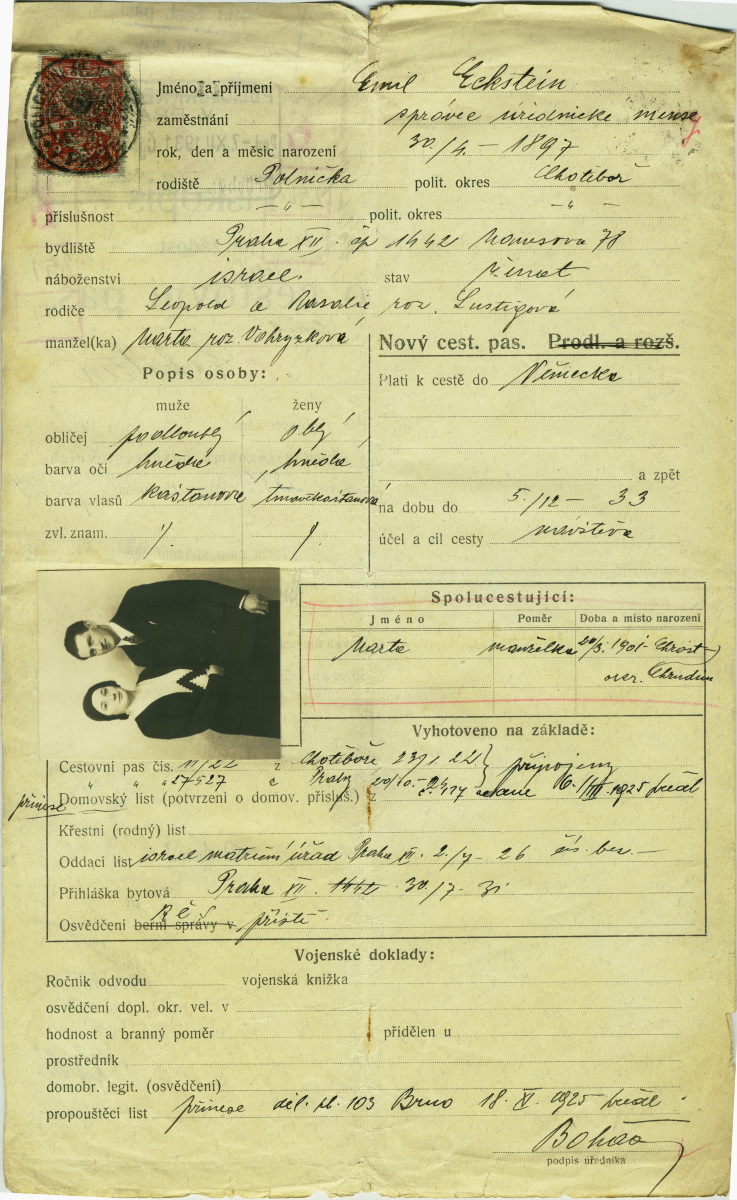 Jméno a příjmení Emil Eckstein
zaměstnání správce úřednické mensy
rok, den a měsíc narození 30/4. – 1897
rodiště Polnička polit. okres Chotěboř
příslušnost – „ – polit. okres – „ –
bydliště Praha XII. čp 1442 78
náboženství israel. stav ženat
rodiče Leopold a Rosalie roz. Lustigová
manžel(ka) Marta roz. Vohryzková
Nový cest. pas. Prodl. a rozš.
Popis osoby:
Platí k cestě do Německa
muže ženy
obličej podlouhlý oblý
barva očí hnědé hnědé
a zpět
barva vlasů kaštanové tmavěkaštanové
na dobu do 5./12 – 33
zvl. znam. /. /.
účel a cíl cesty návštěva
Spolucestující:
Jméno Poměr Doba a místo narození
Marta manželka 20/3. 1901 Chrast
okr. Chrudim
Vyhotoveno na základě:
Cestovní pas čís. 11/22 z Chotěboře 23/1 22 připojeny
„ „ „ 27527 z Prahy 20/10.
Domovský list (potvrzení o domov. přísluš.) z 1925
přinese
Křestní (rodný) list
Oddací list israel matriční úřad Praha VII. 2./7 – 26 čís. bez. –
Přihláška bytová Praha XII. 1442 30./7. 31
Osvědčení berní správy v příště
Vojenské doklady:
Ročník odvodu vojenská knížka
osvědčení dopl. okr. vel. v
hodnost a branný poměr přidělen u
prostředník
domobr. legit. (osvědčení)
propouštěcí list přinese děl. pl. 103 Brno 18. XI. 1925
podpis úředníka